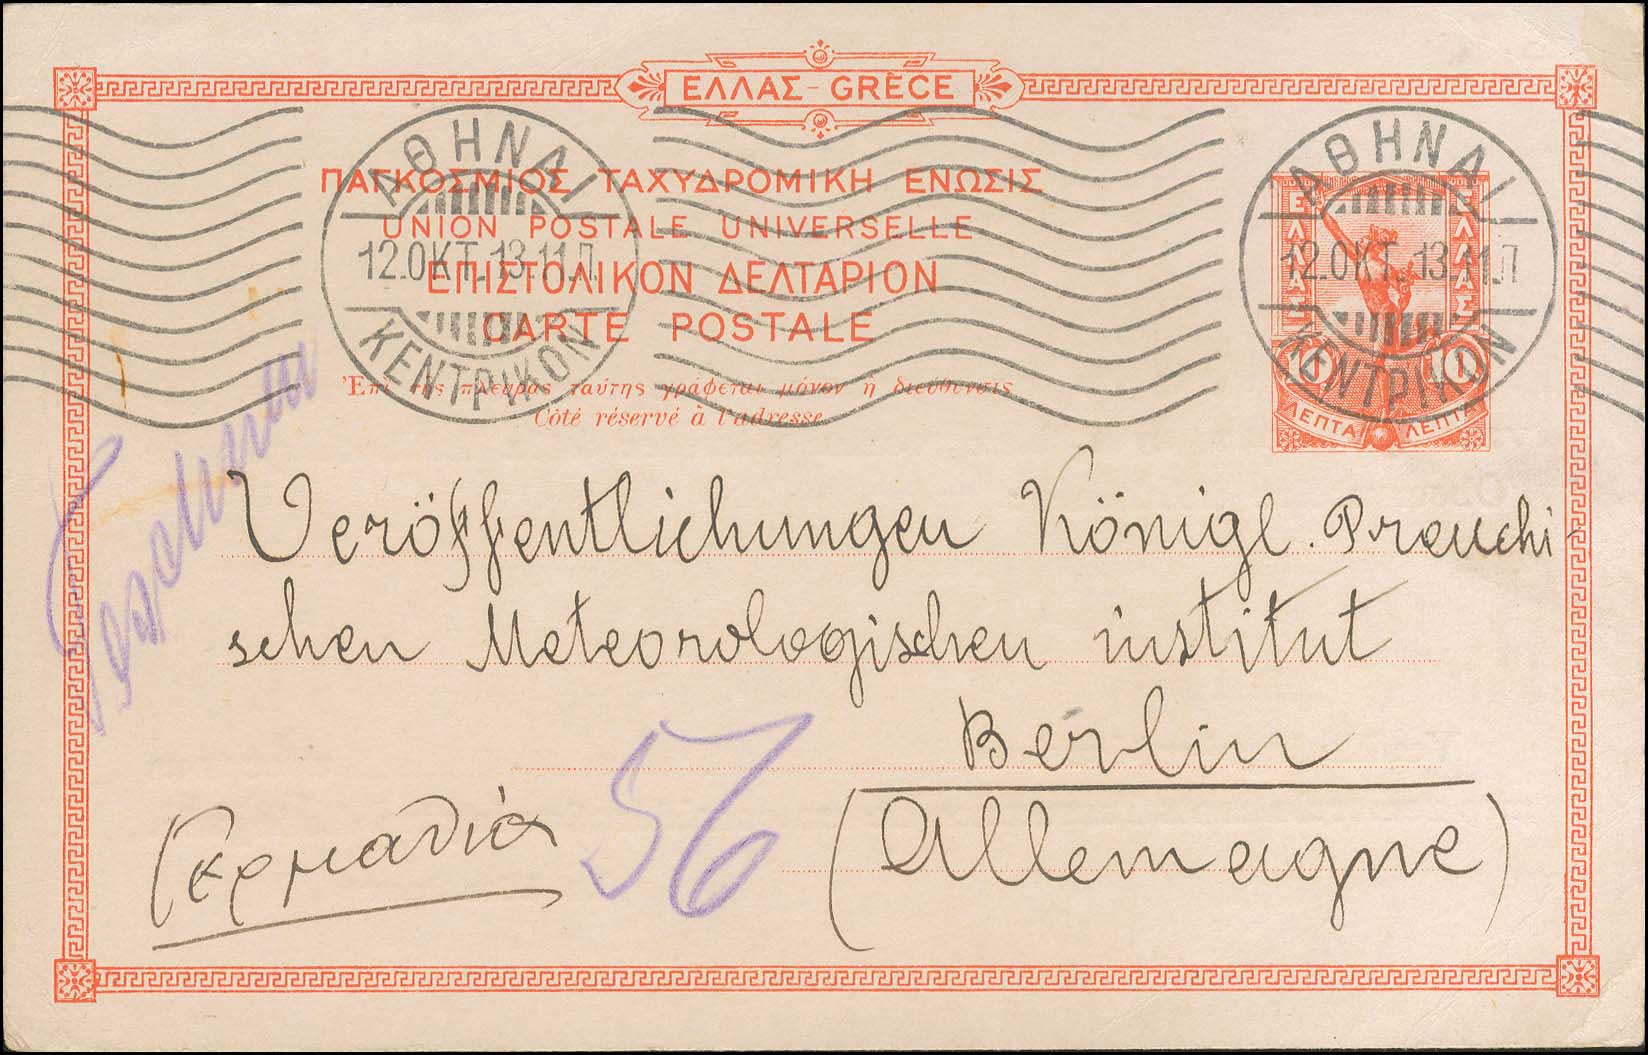 ΕΛΛΑΣ - GRÈCE
ΠΑΓΚΟΣΜΙΟΣ ΤΑΧΥΔΡΟΜΙΚΗ ΕΝΩΣΙΣ
UNION POSTALE UNIVERSELLE
ΕΠΙΣΤΟΛΙΚΟΝ ΔΕΛΤΑΡΙΟΝ
CARTE POSTALE
Ἐπὶ τῆς πλευρᾶς ταύτης γράφεται μόνον ἡ διεύθυνσις
Côté réservé à l'adresse
ΑΘΗΝΑΙ
12.ΟΚΤ.13-11.Π
ΚΕΝΤΡΙΚΟΝ
ΑΘΗΝΑΙ
12.ΟΚΤ.13-11.Π
ΚΕΝΤΡΙΚΟΝ
ΕΛΛΑΣ ΕΛΛΑΣ
10
ΛΕΠΤΑ ΛΕΠΤΑ
Veröffentlichungen Königl. Preuchi
schen Meteorologischen institut
Berlin
(Allemagne)
56